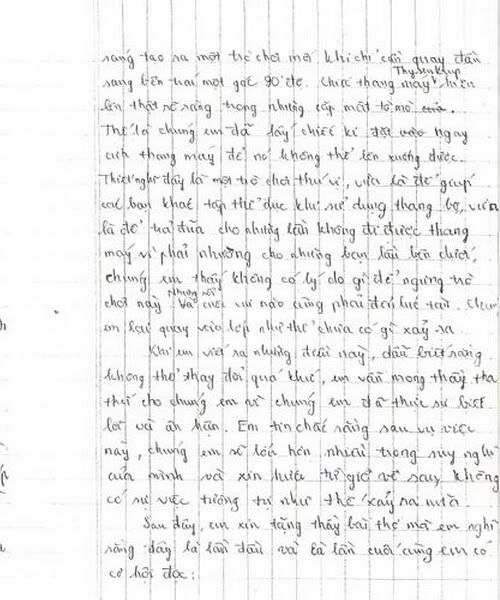 sáng tạo ra một trò chơi mới khi chỉ cần quay đầu
sang bên trái một góc 90 độ. Chiếc thang máy Thyssenkrup hiện
lên thật rõ ràng trong những cặp mắt tò mò
Thế là chúng em đã lấy chiếc kẹ đặt vào ngay
cửa thang máy để nó không thể lên xuống được.
Thiết nghĩ đây là một trò chơi thú vị, vừa là để giúp
các bạn khác tập thể dục khi sử dụng thang bộ, vừa
là để trả đũa cho những lần không đi được thang
máy vì phải nhường cho những bạn lầu bên dưới,
chúng em thấy không có lý do gì để ngừng trò
chơi này. Nhưng rồi cuộc vui nào cũng phải đến lúc tàn. Chúng
em lại quay vào lớp như thể chưa có gì xảy ra.
Khi em viết ra những điều này, dẫu biết rằng
không thể thay đổi quá khứ, em vẫn mong thầy tha
thứ cho chúng em vì chúng em đã thực sự biết
lỗi và ăn năn. Em tin chắc rằng sau vụ việc
này, chúng em sẽ lớn hơn nhiều trong suy nghĩ
của mình và xin hứa từ giờ về sau, không
có sự việc tương tự như thế xảy ra nữa.
Sau đây, em xin tặng thầy bài thơ mà em nghĩ
rằng đây là lần đầu và là lần cuối cùng em có
cơ hội đọc: